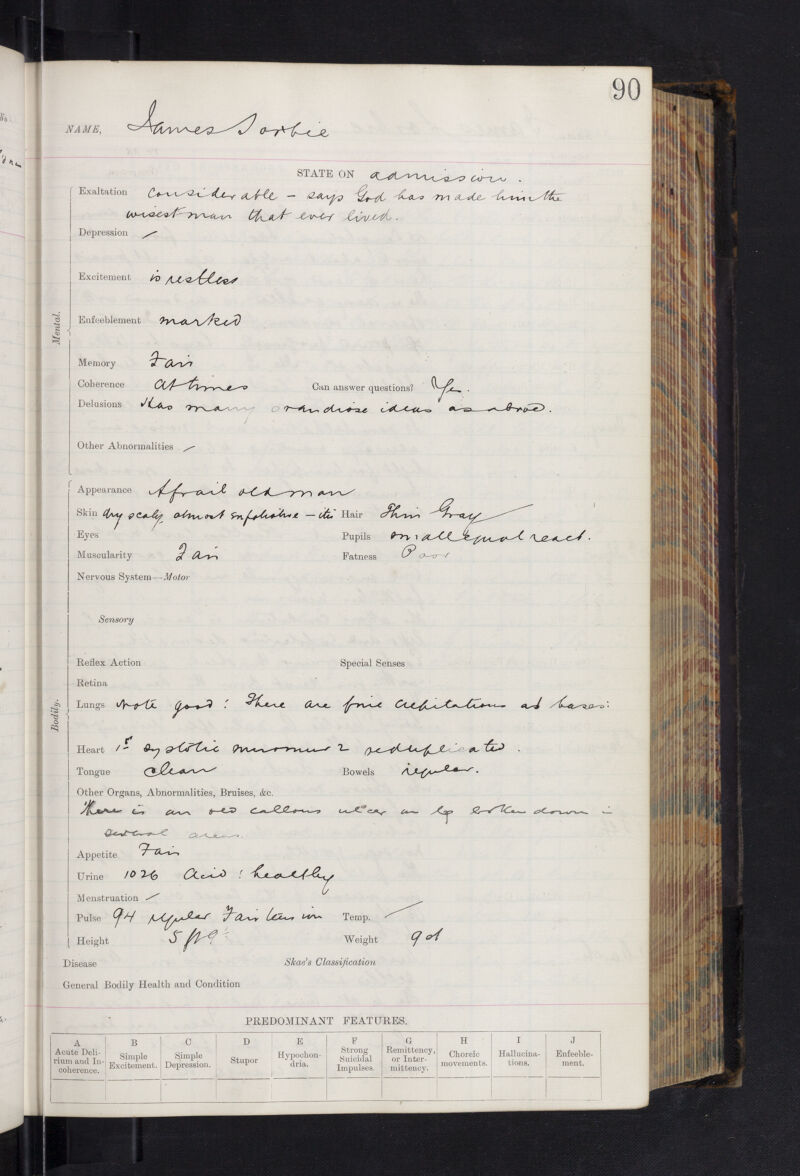 90
NAME, James Sorbie
STATE ON admission.
Exaltation considerable – says God has made him the
wisest man that ever lived.
Depression /
Excitement is restless
Enfeeblement marked
Mental.
Memory Fair
Coherence At times Can answer questions? Yes.
Delusions Has many grandiose ideas as above.
Other Abnormalities /
Appearance A frail old man
Skin dry scaly, almost exfoliative Hair Thin Gray
Eyes Pupils small equal react.
Muscularity Fair Fatness Poor
Nervous System—Motor
Sensory
Reflex Action Special Senses
Retina
Bodily.
Lungs Note good: There are fine crepitations at bases:
Heart 1st systolic murmur 2 reduplicated.
Tongue Clean Bowels regular.
Other Organs, Abnormalities, Bruises, &c.
There is an old callous ulcer on leg broken down in
several areas.
Appetite Fair
Urine 1026 Acid: healthy
Menstruation /
Pulse 94 regular Fair tension Temp. /
Height 5 ft 9 Weight 9 st
Disease Skae's Classification
General Bodily Health and Condition
PREDOMINANT FEATURES.
A B C D E F G H I J
Acute Deli-rium and In-coherence. Simple Excitement. Simple Depression. Stupor Hypochon-dria. Strong Suicidal Impulses. Remittency, or Inter-mittency. Choreic movements. Hallucina-tions. Enfeeble-ment.